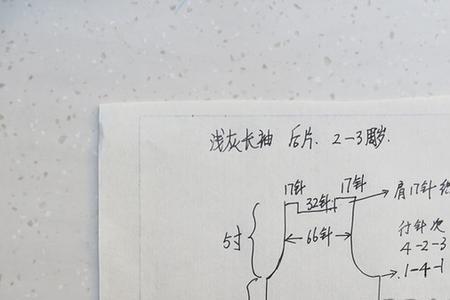 浅灰长袖 后片. 2-3周岁.
17针 17针
32针 肩17针
5寸 66针
付针次
4-2-3
.1-4-1